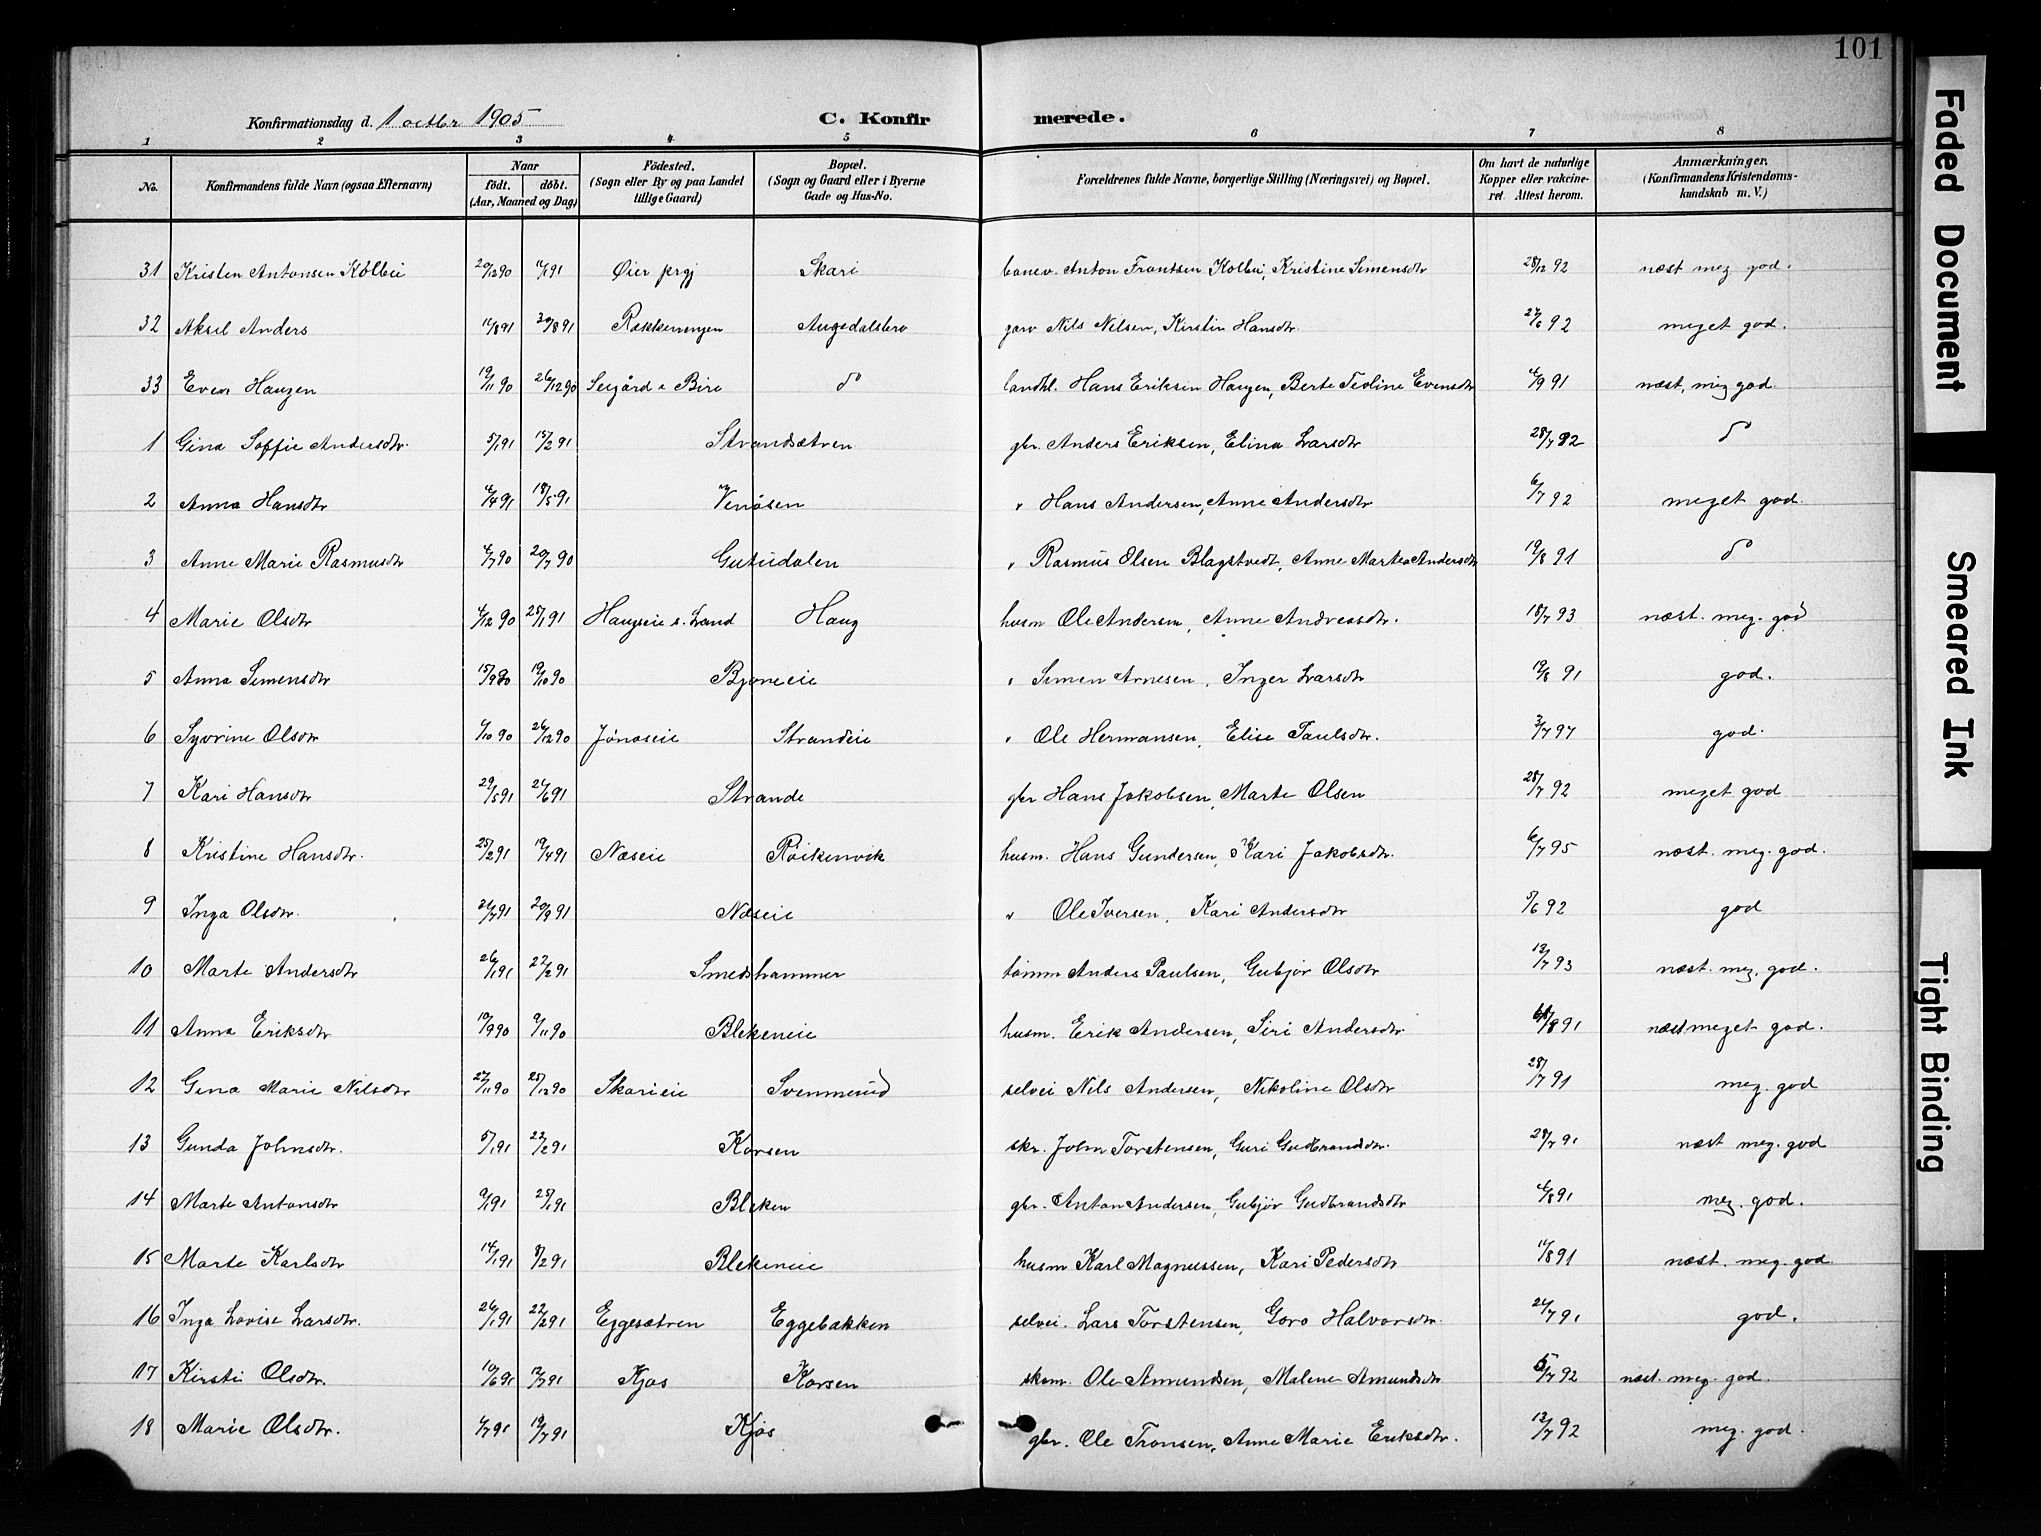 101
Konfirmationsdag d. 1 octbr 1905 C. Konfirmerede.
1 2 3 4 5 6 7 8
No. Konfirmandens fulde Navn (ogsaa Efternavn) Naar født. døbt. (Aar, Maaned og Dag) Fødested. (Sogn eller By og paa Landet tillige Gaard) Bopæl. (Sogn og Gaard eller i Byerne Gade og Hus-No. Forældrenes fulde Navne, borgerlige Stilling (Næringsvei) og Bopæl. Om havt de naturlige Kopper eller vakcineret. Attest herom. Anmærkninger. (Konfirmandens Kristendomskundskab m. V.)
31 Kristen Antonsen Kolbu 20/12 90 Øier prgj Skari banev. Anton Frantsen Kolbu, Kristine Simensdtr 28/12 92 næst meg god.
32 Aksel Anders 30/8 91 garv Nils Nilsen, Kirstin Hansdtr 27/6 92 meget god.
33 Even Haugen 19/11 90 26/12 90 Biri do landhl. Hans Eriksen Haugen, Berte Teoline Evensdtr 4/9 91 næst, meg god
1 Gina Soffie Andersdtr. 5/1 91 15/2 91 Strandsætren gbr. Anders Eriksen, Elina Larsdtr 28/7 92 do
2 Anna Hansdtr 4/4 91 18/5 91 Venåsen " Hans Andersen, Anne Andersdtr 6/7 92 meget god.
3 Anne Marie Rasmusdtr 4/7 90 20/7 90 Gutudalen " Rasmus Olsen Blagstvedt, Anne Martea Andersdtr 19/8 91 do
4 Marie Olsdtr 4/12 90 25/1 91 Haugseie s. Land Haug husm Ole Andersen, Anne Andreasdtr. 18/7 93 næst. meg. god
5 Anna Simensdtr 15/9 90 19/10 90 Bjoneeie " Simen Arnesen, Inger Larsdtr 19/8 91 god.
6 Syvrine Olsdtr 26/12 90 Jønaseie Strandeie " Ole Hermansen, Elise Paulsdtr. 3/7 97 god.
7 Kari Hansdtr 29/5 91 21/6 91 Strande gbr Hans Jakobsen, Marte Olsen 28/7 92 meget god
8 Kristine Hansdtr. 25/2 91 19/4 91 Næseie Røikenvik husm. Hans Gundersen, Kari Jakobsdtr. 6/7 95 næst. meg. god.
9 Inga Olsdtr. 20/9 91 Næseie " Ole Iversen, Kari Andersdtr 5/6 92 god
10 Marte Andersdtr 26/1 91 22/2 91 Smedshammer tømm Anders Paulsen, Gubjør Olsdtr 13/7 93 næst. meg. god.
11 Anna Eriksdtr 10/9 90 9/11 90 Blekeneie husm. Erik Andersen, Siri Andersdtr næst meget god.
12 Gina Marie Nilsdtr 27/11 90 25/12 90 Skarieie Svenmerud selvei Nils Andersen, Nikoline Olsdtr 28/7 91 meg. god
13 Gunda Johnsdtr. 5/1 91 22/2 91 Korsen skr. John Torstensen, Guri Gudbrandsdtr. 28/7 91 næst meg. god
14 Marte Antonsdtr 9/1 91 25/1 91 Bleken gbr. Anton Andersen, Gubjør Gudbrandsdtr 4/8 91 meg. god.
15 Marte Karlsdtr 14/1 91 8/2 91 Blekeneie husm Karl Magnussen, Kari Pedersdtr 11/8 91 næst. meg. god
16 Inga Lovise Larsdtr. 26/1 91 22/2 91 Eggesætren Eggebakken selvei. Lars Torstensen, Goro Halvorsdtr. 21/7 91 god.
17 Kirsti Olsdtr. 10/6 91 12/7 91 Kjos Korsen skom. Ole Amundsen, Malene Amundsdtr 5/7 92 næst. meg. god.
18 Marie Olsdtr. 4/7 91 19/7 91 Kjos gbr. Ole Tronsen, Anne Marie Eriksdtr. 13/7 92 meg. god.
Faded Document
Smeared Ink
Tight Binding